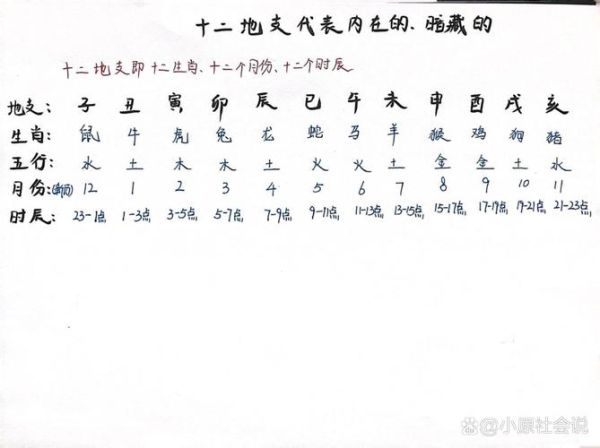 十二地支代表内在的、暗藏的
十二地支即十二生肖、十二个月份、十二个时辰
地支: 子 丑 寅 卯 辰 巳 午 未 申 酉 戌 亥
生肖: 鼠 牛 虎 兔 龙 蛇 马 羊 猴 鸡 狗 猪
五行: 水 土 木 木 土 火 火 土 金 金 土 水
月份: 12 1 2 3 4 5 6 7 8 9 10 11
时辰: 23-1点 1-3点 3-5点 5-7点 7-9点 9-11点 11-13点 13-15点 15-17点 17-19点 19-21点 21-23点
@小原社会说